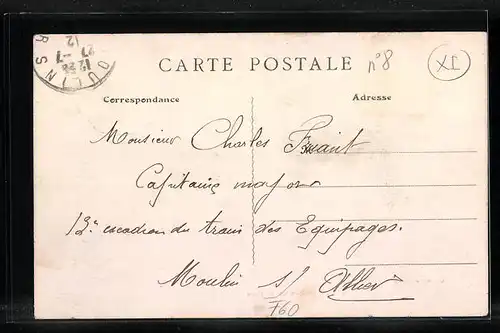 CARTE POSTALE
n°8
Correspondance
Adresse
Monsieur Charles
Capitaine major
13e escadron du train des Equipages.
Moulin s/ Allier
F60